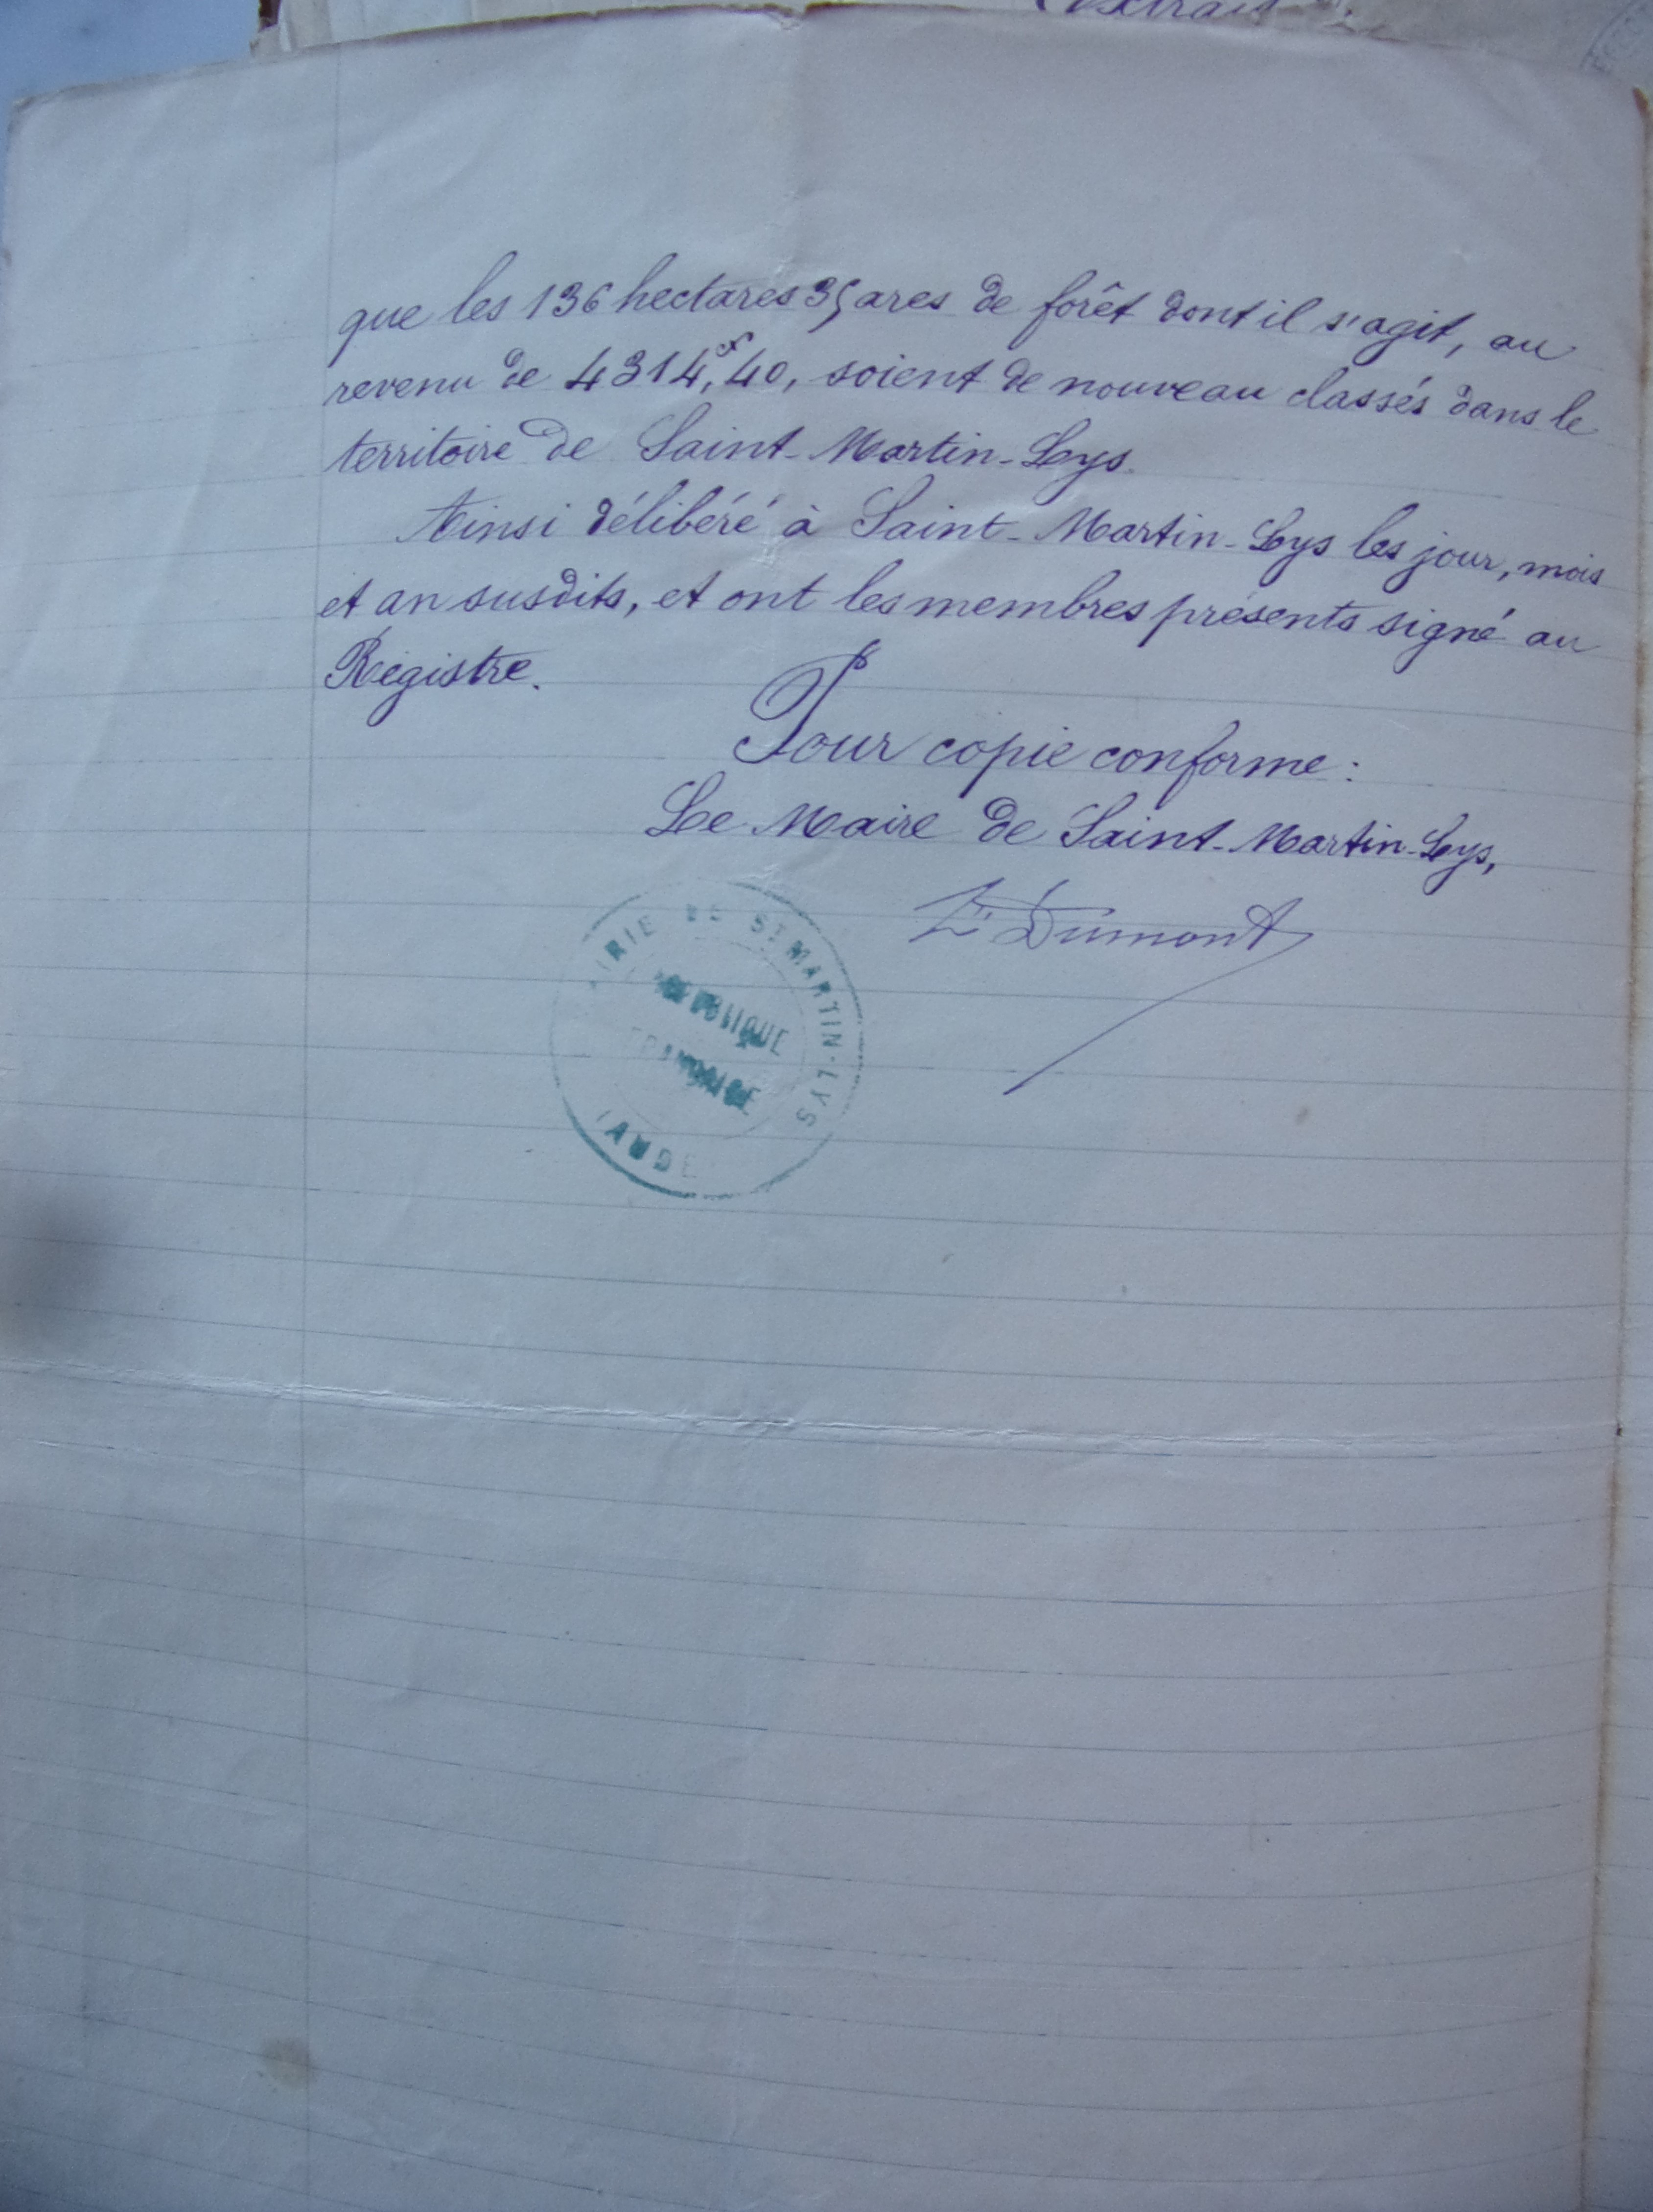 Extrait
que les 136 hectares 35 ares de forêt dont il s'agit, au
revenu de 4314,40, soient de nouveau classés dans le
territoire de Saint-Martin-Lys.
Ainsi délibéré à Saint-Martin-Lys les jour, mois
et an susdits, et ont les membres présents signé au
Régistre.
Pour copie conforme :
Le Maire de Saint-Martin-Lys,
Dumont
MAIRIE DE ST MARTIN-LYS
RÉPUBLIQUE
FRANÇAISE
(AUDE